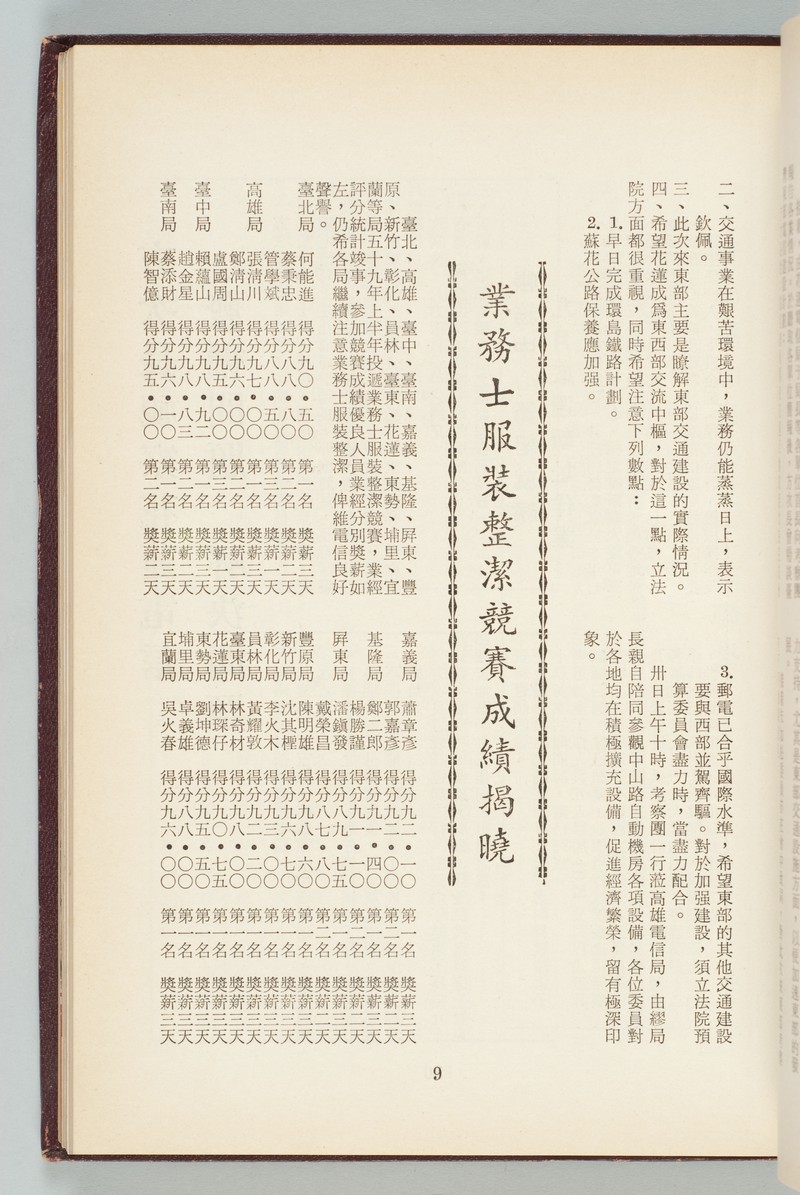 二、交通事業在艱苦環境中，業務仍能蒸蒸日上，表示
欽佩。
三、此次來東部主要是瞭解東部交通建設的實際情況。
四、希望花蓮成爲東西部交流中樞，對於這一點，立法
院方面都很重視，同時希望注意下列數點：
1.早日完成環島鐵路計劃。
2.蘇花公路保養應加强。
3.郵電已合乎國際水準，希望東部的其他交通建設
要與西部並駕齊驅。對於加强建設，須立法院預
算委員會盡力時，當盡力配合。
卅日上午十時，考察團一行蒞高雄電信局，由繆局
長親自陪同參觀中山路自動機房各項設備，各位委員對
於各地均在積極擴充設備，促進經濟繁榮，留有極深印
象。
業務士服裝整潔競賽成績揭曉
臺北、高雄、臺中、臺南、嘉義、基隆、屏東、豐
原、新竹、彰化、員林、臺東、花蓮、東勢、埔里、宜
蘭等局五十九年上半年投遞業務士服裝整潔競賽，業經
評分統計竣事，參加競賽成績優良人員業經分別獎薪如
左，仍希各局繼續注意業務士服裝整潔，俾維電信良好
聲譽。
臺北局 何能進 得分九〇•五〇 第一名 獎薪三天
蔡秉忠 得分八八•八〇 第二名 獎薪二天
管學斌 得分八八•五〇 第三名 獎薪一天
高雄局 張清川 得分九七•〇〇 第一名 獎薪三天
鄭清山 得分九六•〇〇 第二名 獎薪二天
盧國周 得分九五•〇〇 第三名 獎薪一天
臺中局 賴蘊山 得分九八•九二 第一名 獎薪三天
趙金星 得分九八•八三 第二名 獎薪二天
臺南局 蔡添財 得分九六•一〇 第一名 獎薪三天
陳智億 得分九五•〇〇 第二名 獎薪二天
嘉義局 蕭章彥 得分九二•一〇 第一名 獎薪三天
郭嘉彥 得分九二•〇〇 第二名 獎薪二天
基隆局 鄭二郎 得分九一•四〇 第一名 獎薪三天
楊勝謹 得分九一•一〇 第二名 獎薪二天
屏東局 潘鎭發 得分九九•七五 第一名 獎薪三天
戴榮昌 得分八七•八〇 第二名 獎薪二天
豐原局 陳明雄 得分九八•六〇 第一名 獎薪三天
新竹局 沈其檉 得分九六•七〇 第一名 獎薪三天
彰化局 李火木 得分九三•〇〇 第一名 獎薪三天
員林局 黃耀敦 得分九二•二〇 第一名 獎薪三天
臺東局 林奇材 得分九八•〇〇 第一名 獎薪三天
花蓮局 林琛仔 得分九〇•七五 第一名 獎薪三天
東勢局 劉坤德 得分九五•五〇 第一名 獎薪三天
埔里局 卓義雄 得分九八•〇〇 第一名 獎薪三天
宜蘭局 吳火春 得分九六•〇〇 第一名 獎薪三天
9